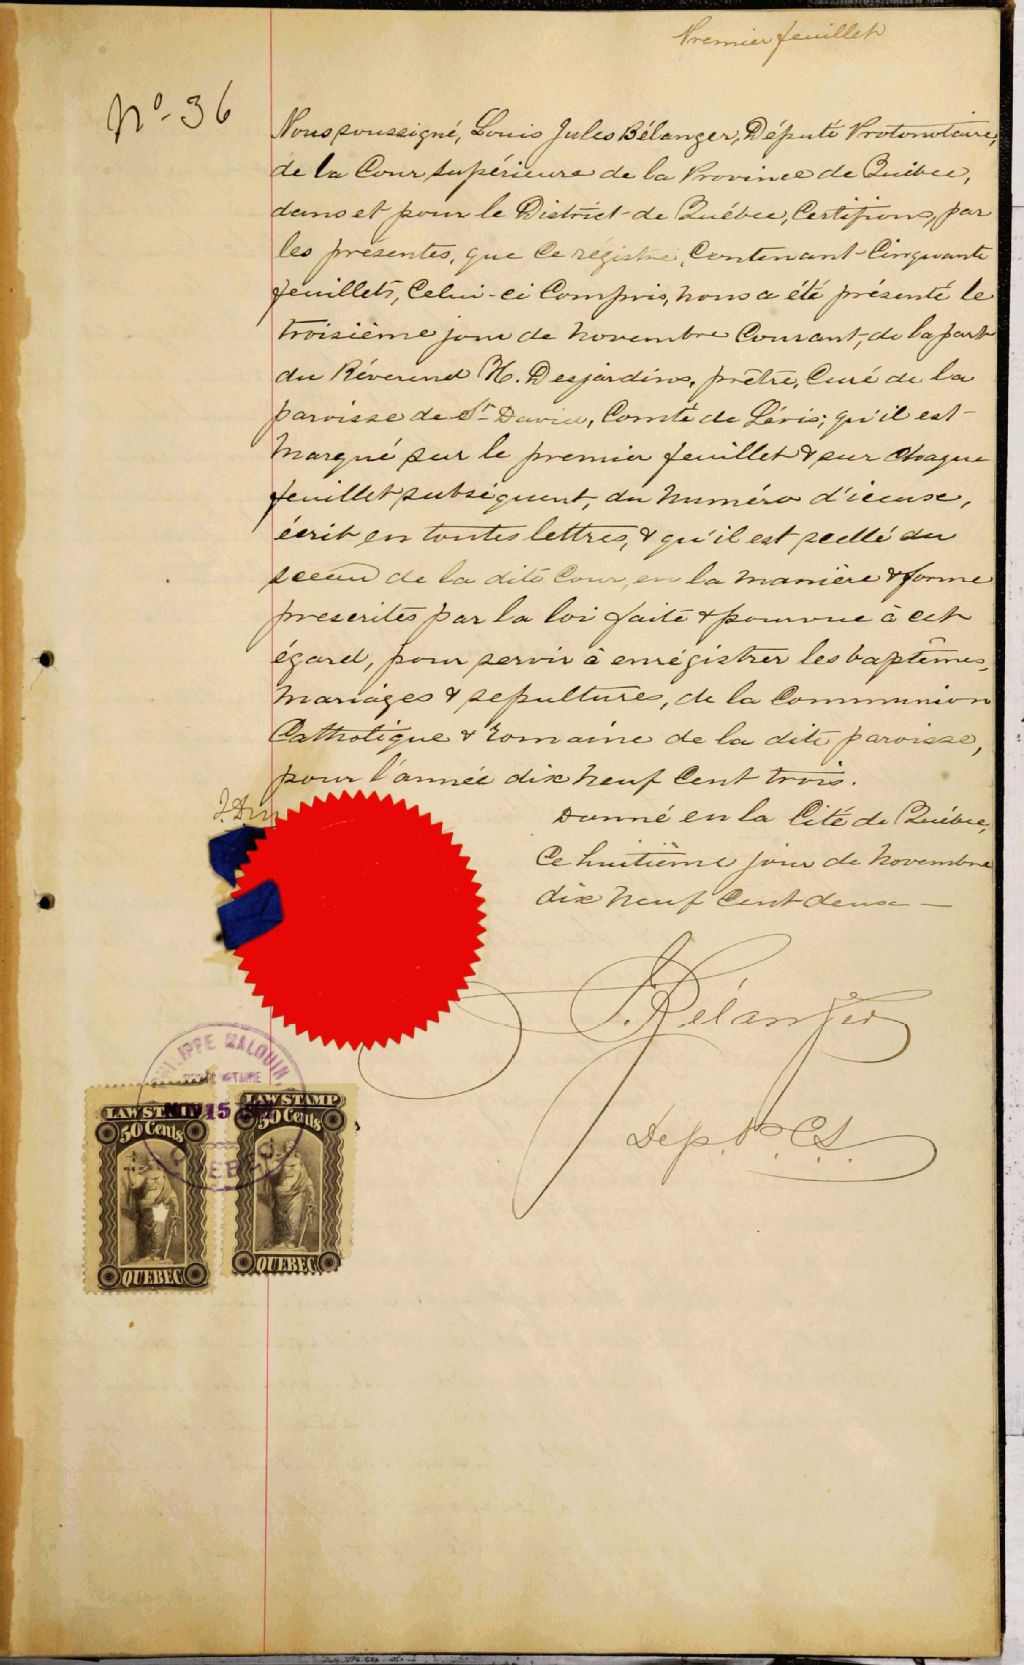 Premier feuillet
No. 36
Nous soussigné, Louis Jules Bélanger, Député Protonotaire,
de la Cour supérieure de la Province de Québec,
dans et pour le District de Québec, Certifions, par
les présentes, que ce régistre, Contenant Cinquante
feuillets, Celui-ci Compris, nous a été présenté le
troisième jour de Novembre Courant, de la part
du Révérend H. Desjardins, prêtre, Curé de la
paroisse de St David, Comté de Lévis; qu'il est
marqué sur le premier feuillet & sur chaque
feuillet subséquent, du numéro d'iceux,
écrit en toutes lettres, & qu'il est scellé du
sceau de la dite Cour, en la manière & forme
prescrites par la loi faite & pourvue à cet
égard, pour servir à enrégistrer les baptêmes,
mariages & sepultures, de la Communion
Catholique & romaine de la dite paroisse,
pour l'année dix neuf Cent trois.
Donné en la Cité de Québec,
Ce huitième jour de Novembre
dix neuf Cent deux —
J. Bélanger
Dep. P. C. S.
PHILIPPE MALOUIN,
NOV 15
QUEBEC
LAW STAMP
50 Cents
QUEBEC
LAW STAMP
50 Cents
QUEBEC